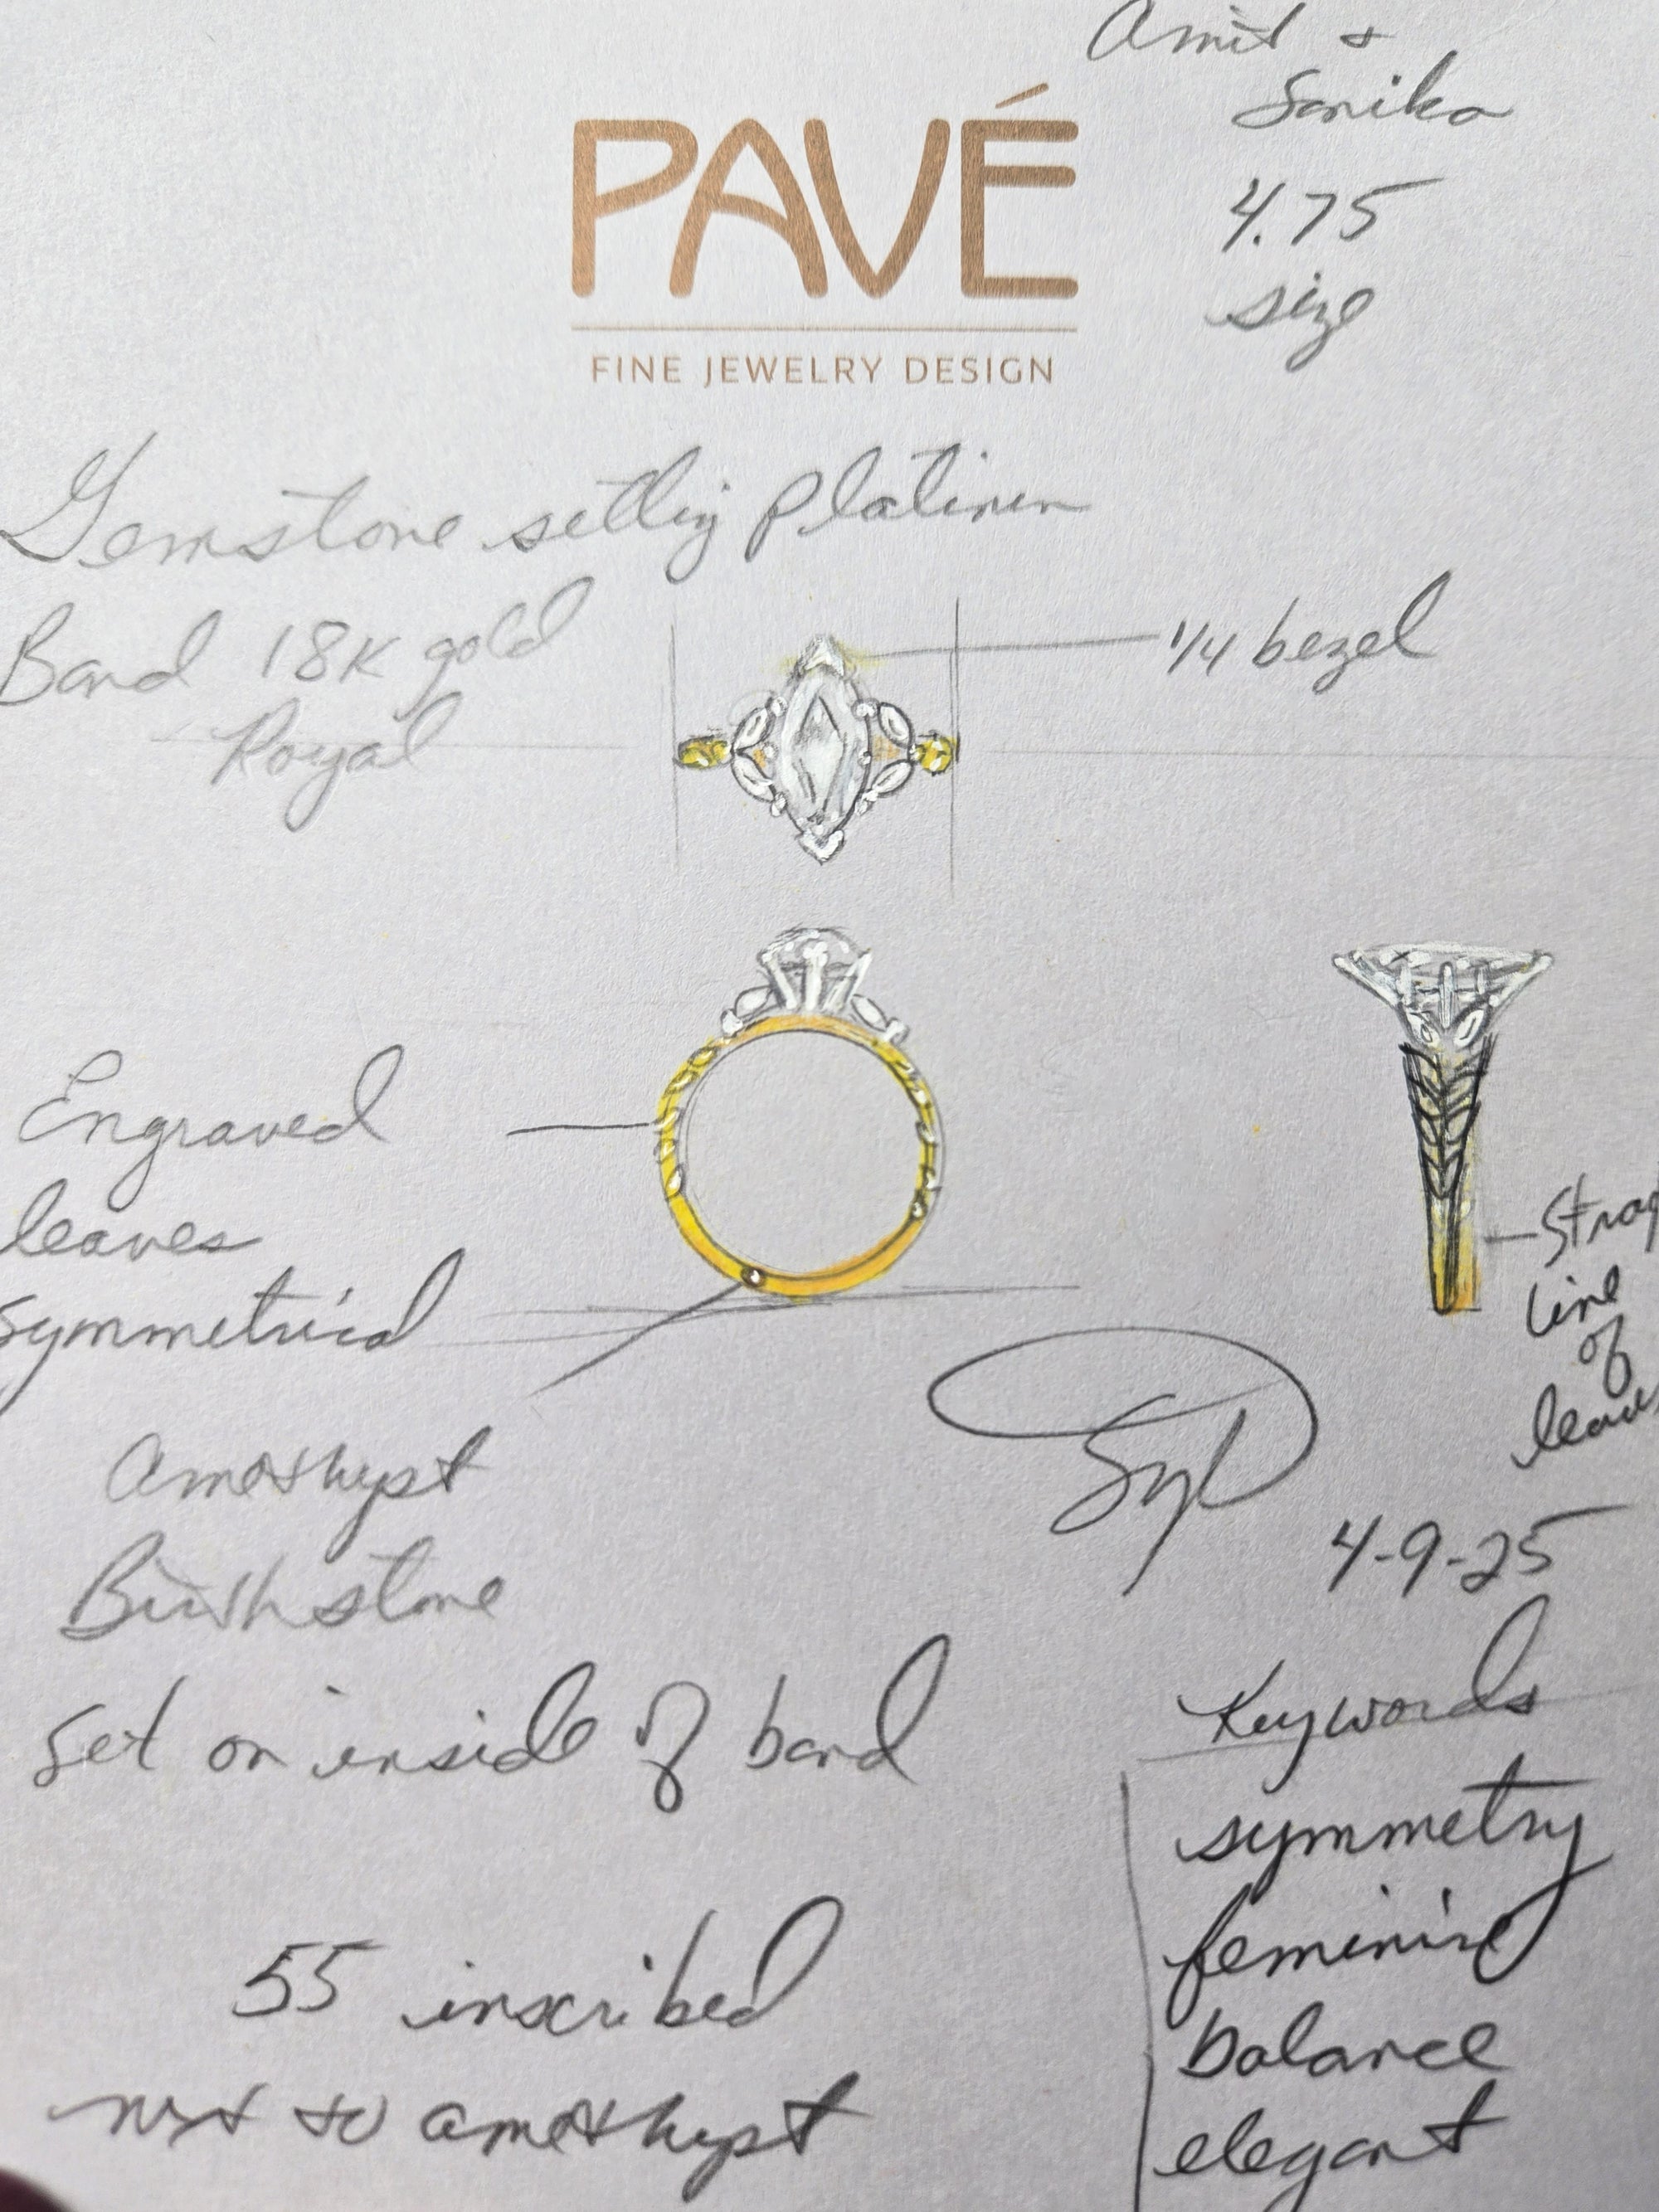 Amit &
Sanika
4.75
size
PAVÉ
FINE JEWELRY DESIGN
Gemstone setting Platinum
Band 18K gold
Royal
1/4 bezel
Engraved
leaves
symmetrical
Line
of
Amethyst
Birthstone
set on inside of band
4-9-25
Keywords
symmetry
feminine
balance
elegant
55 inscribed
next to amethyst